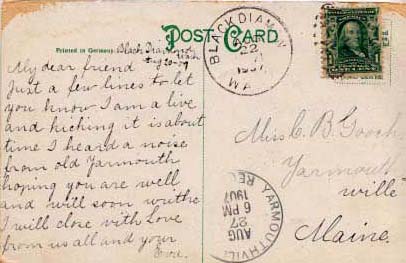 POST CARD
Printed in Germany
Black Diamond
Wash
Aug 20-07
My dear friend
Just a few lines to let
you know I am a live
and kicking it is about
time I heard a noise
from old Yarmouth
hoping you are well
and will soon write
I will close with Love
from us all and your
Eva.
BLACK DIAMOND
AUG
22
1907
WA
Miss C. B. Gooch
Yarmouth
ville
Maine.
YARMOUTHVILLE
REC'D
AUG
27
6 PM
1907